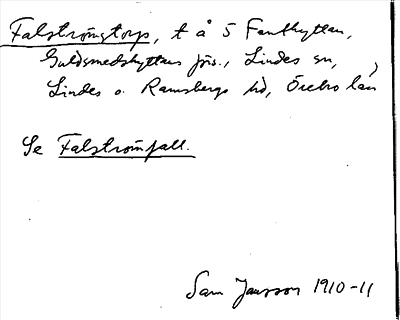 Falströmstorp, t å 5 Fanthyttan,
Guldsmedshyttans jös., Lindes sn,
Lindes o. Ramsbergs hd, Örebro län
Se Falströmfall.
Sam Jansson 1910-11